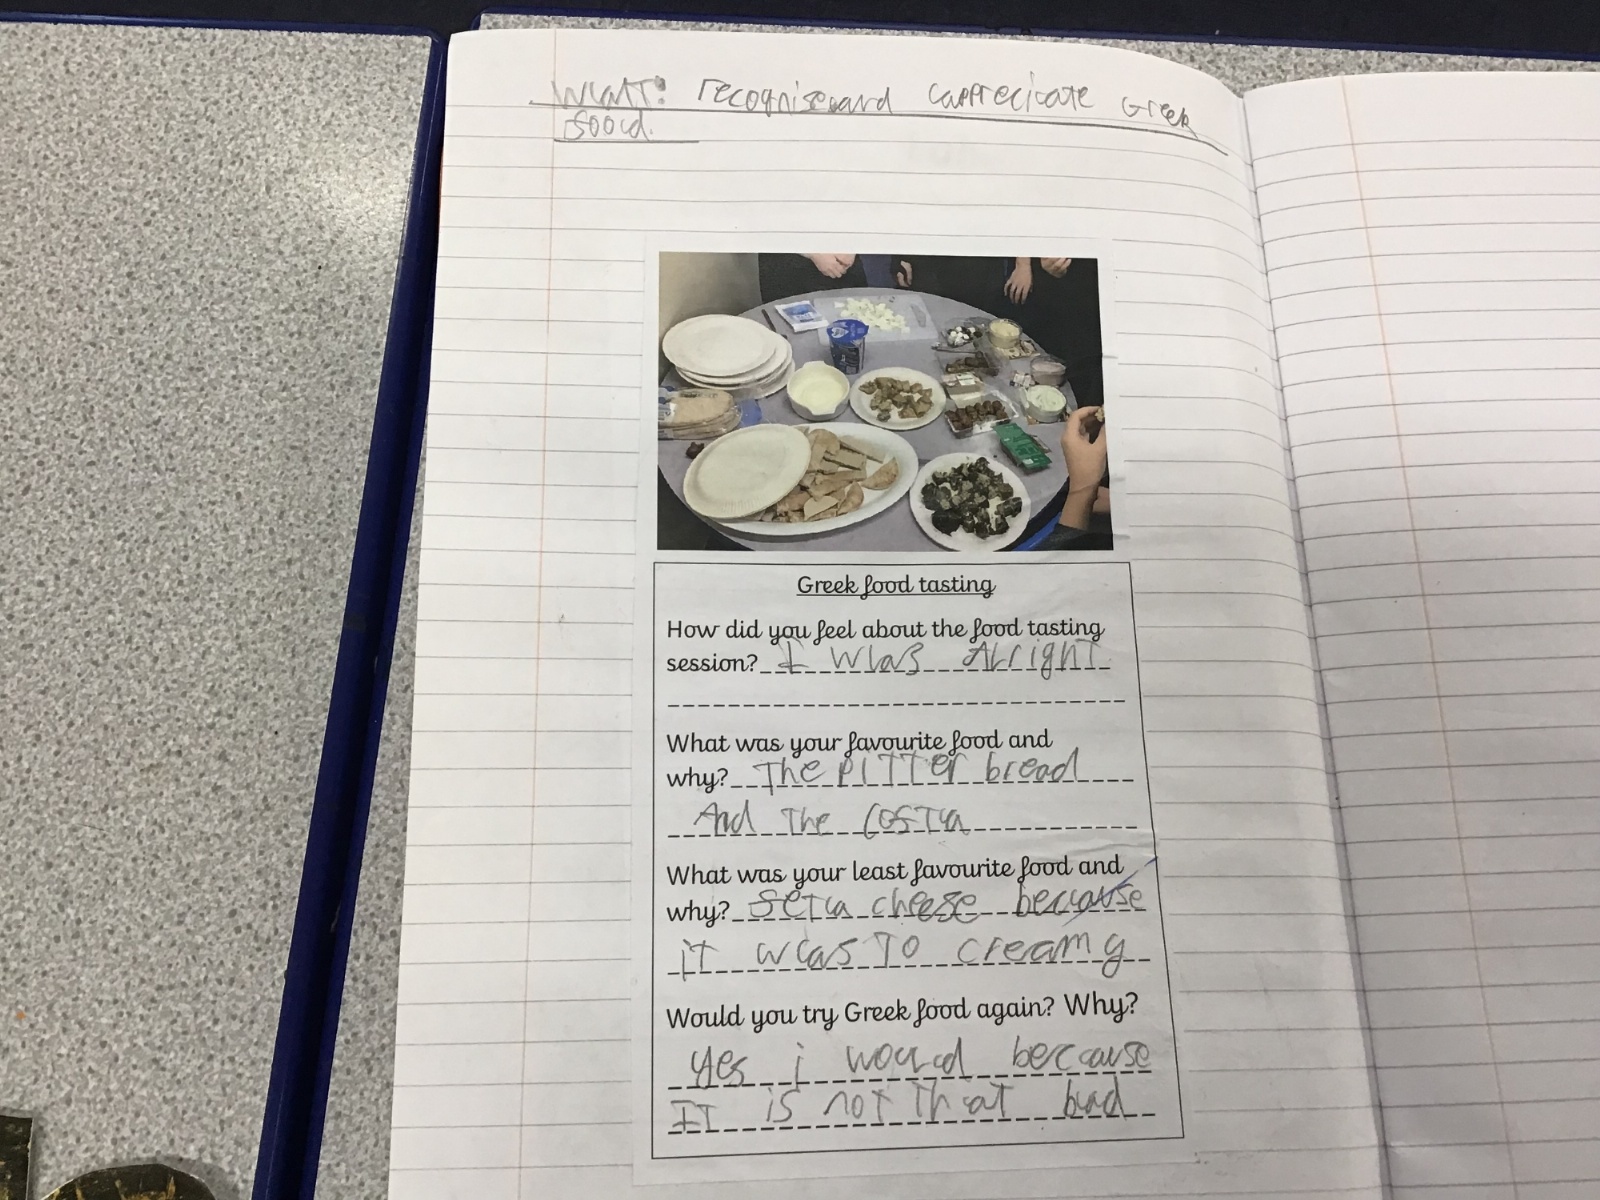 WLAIT: recognise and appreciate Greek
food.
Greek food tasting
How did you feel about the food tasting
session? I was Alright
What was your favourite food and
why? The PITTer bread
And The
What was your least favourite food and
why? feta cheese because
iT was To creamy
Would you try Greek food again? Why?
yes i would because
IT is noT ThaT bad